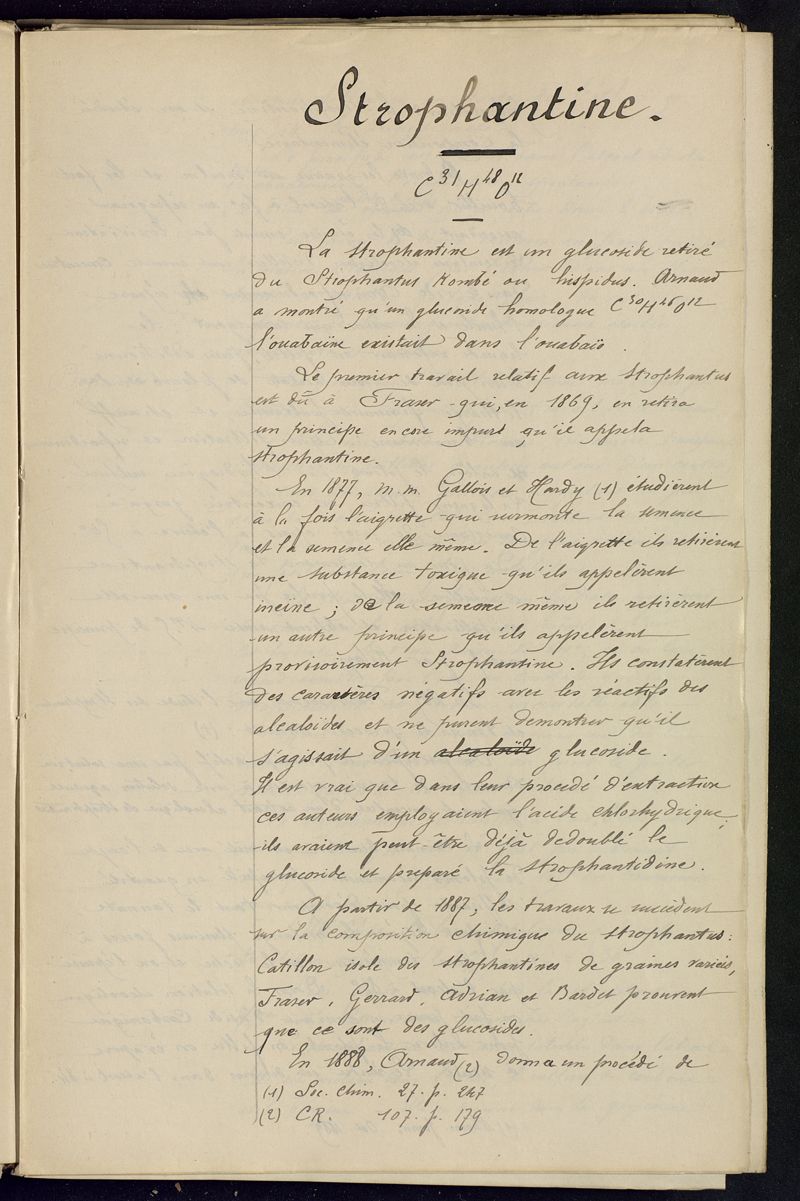 Strophantine.
C³¹H⁴⁸O¹²
La Strophantine est un glucoside retiré
du Strophantus Kombé ou hispidus. Arnaud
a montré qu'un glucoside homologue C³⁰H⁴⁶O¹²
l'ouabaïne existait dans l'ouabaïo.
Le premier travail relatif aux Strophantus
est dû à Fraser qui, en 1869, en retira
un principe encore impur qu'il appela
strophantine.
En 1877, M.M. Gallois et Hardy (1) étudièrent
à la fois l'aigrette qui surmonte la semence
et la semence elle même. De l'aigrette ils retirèrent
une substance toxique qu'ils appelèrent
ineïne ; de la semence même ils retirèrent
un autre principe qu'ils appelèrent
provisoirement Strophantine. Ils constatèrent
des caractères négatifs avec les réactifs des
alcaloïdes et ne purent demontrer qu'il
s'agissait d'un alcaloïde glucoside.
Il est vrai que dans leur procédé d'extraction
ces auteurs employaient l'acide chlorhydrique ;
ils avaient peut-être déjà dedoublé le
glucoside et preparé la strophantidine.
A partir de 1887, les travaux se succèdent
sur la composition chimique du strophantus :
Catillon isole des strophantines de graines variées,
Fraser, Gerrard, Adrian et Bardet prouvent
que ce sont des glucosides.
En 1888, Arnaud (2) donna un procédé de
(1) Soc. Chim. 27. p. 247
(2) CR. 107. p. 179